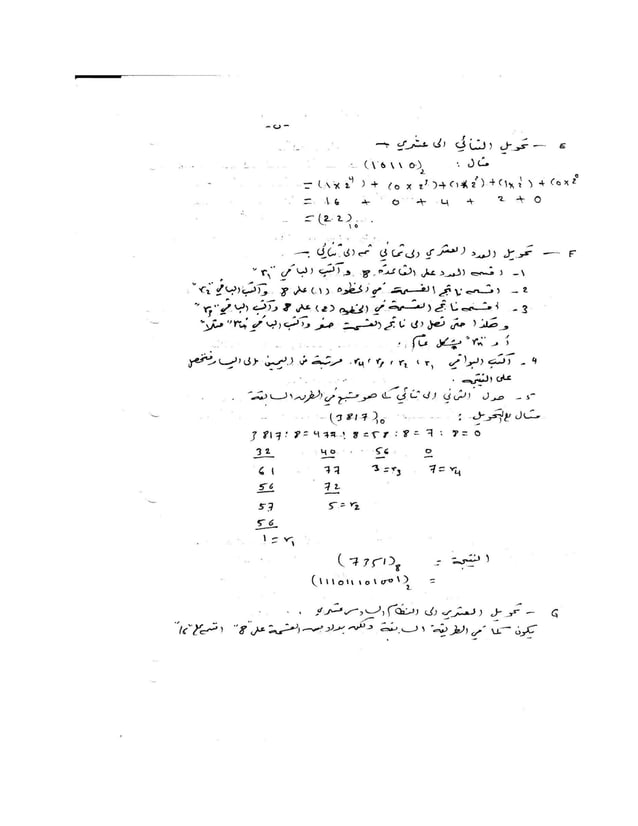 -٥-
E - تحويل الثنائي الى عشري -
مثال : (10110)₂
= (1x2⁴) + (0x2³)+(1x2²)+(1x2¹)+(0x2⁰
= 16 + 0 + 4 + 2 + 0
= (22)₁₀
F - تحويل العدد العشري الى ثماني ثم الى ثنائي -
1- اقسم العدد على القاعدة 8 واكتب الباقي "r₁"
2- اقسم ناتج القسمة في الخطوة (1) على 8 واكتب الباقي "r₂"
3- اقسم ناتج القسمة في الخطوة (2) على 8 واكتب الباقي "r₃"
وهكذا حتى تصل الى ناتج القسمة صفر واكتب الباقي مثلا"
أو "rₙ" بشكل عام .
4- اكتب البواقي r₁ ، r₂ ، r₃ ، r₄ مرتبة من اليمين الى اليسار فتحصل
على النتيجة .
5- حول الثماني الى ثنائي كما هو متبع في الطريقة السابقة
مثال التحويل : (3817)₁₀
3817:8=477:8=58:8=7:8=0
32 40 56 0
61 77 3=r₃ 7=r₄
56 72
57 5=r₂
56
1=r₁
النتيجة = (7351)₈
= (111011101001)₂
G - تحويل العشري الى النظام السادس عشري
يكون كما في الطريقة السابقة ولكن بدلا من القسمة على "8" اقسم على "16"